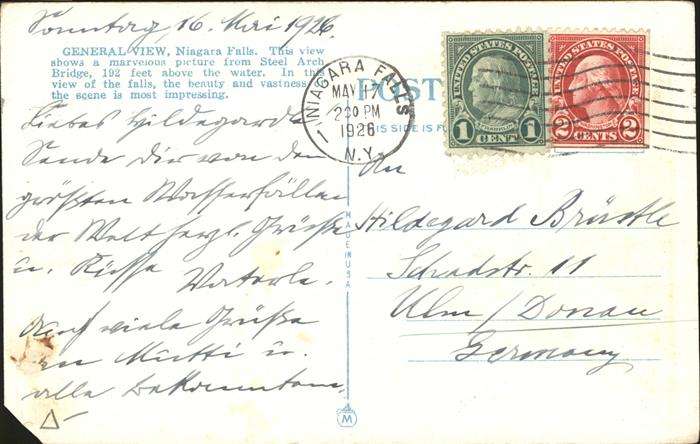 Sonntag 16. Mai 1926.
GENERAL VIEW, Niagara Falls. This view
shows a marvelous picture from Steel Arch
Bridge, 192 feet above the water. In this
view of the falls, the beauty and vastness of
the scene is most impressing.
Liebes Hildegardle
Sende Dir von den
größten Wasserfällen
der Welt herzl. Grüße
u. Küsse Vaterle.
Auch viele Grüße
an Mutti u.
alle Bekannten.
NIAGARA FALLS
MAY 17
2 30 PM
1926
N.Y.
1
POST
THIS SIDE IS F
UNITED STATES POSTAGE
FRANKLIN
1 CENT 1
UNITED STATES POSTAGE
2 CENTS 2
An
Hildegard Brüstle
Schadstr. 11
Ulm / Donau
Germany
MADE IN USA
M